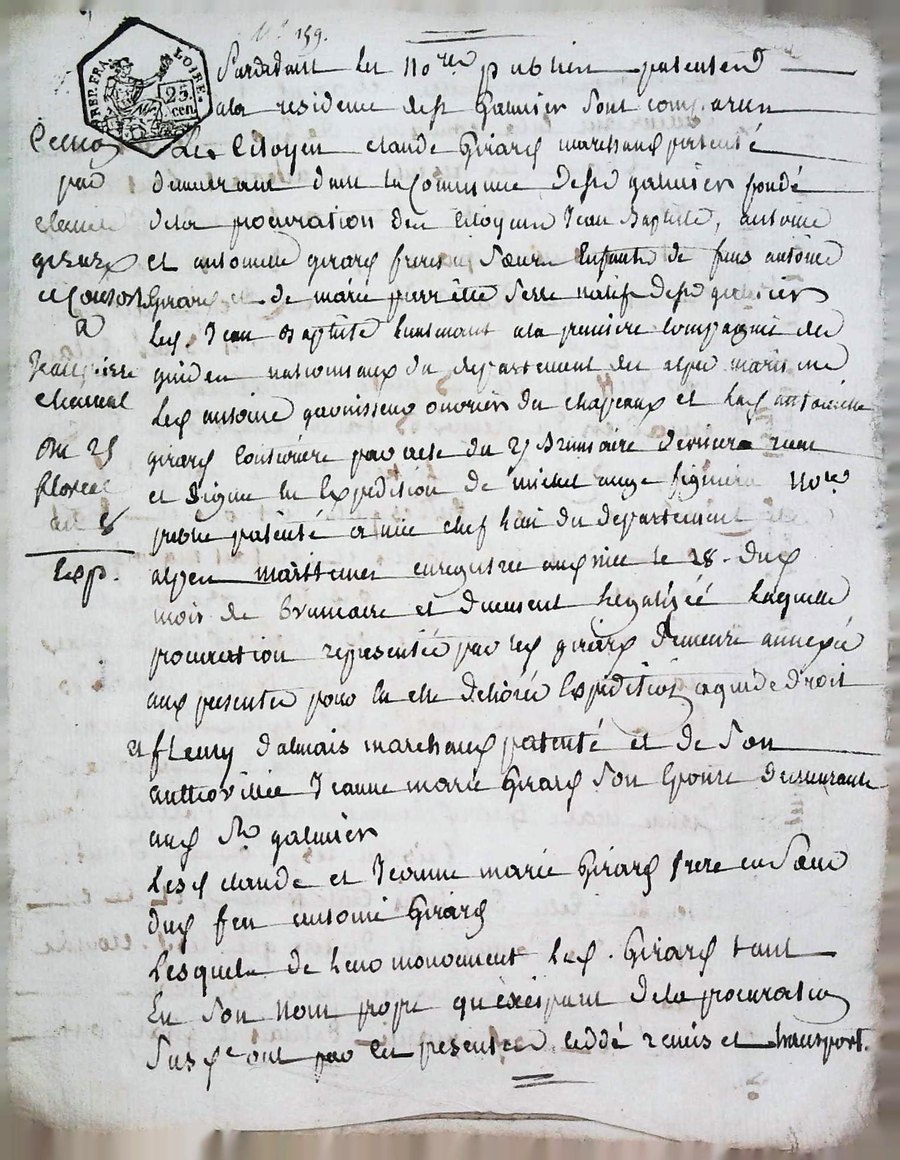 N° 159.
REP. FRA.
LOIRE.
25
cen
Pardevant les nore publics patentés
a la residence de st Galmier sont comparus
Les Citoyen claude Girard marchand patenté
demeurant dans la Commune de st galmier fondé
de la procuration des Citoyens Jean Baptiste, antoine
et antoinette girard freres et Sœur Enfants de feus antoine
Girard et de marie pierrette Serre natifs de st galmier
Led Jean Baptiste Lieutenant a la premiere Compagnie des
guides nationaux du departement des alpes maritime
Led antoine ouvrier du chapeaux et Lad antoinette
girard Couturière par acte du 27 Brumaire dernier reçu
et Signé en Expedition de michel ange nore
public patenté a nice chef lieu du departement des
alpes maritimes enregistrée aud nice le 28 dud
mois de brumaire et duement Legalizée Laquelle
procuration representée par led girard demeure annexée
aux presentes pour en etre delivré Expedition a qui de droit
et fleury dalmais marchand patenté et de Son
authorité Jeanne marie Girard Son Epouse demeurants
aud St galmier
Lesd claude et Jeanne marie Girard frere et Sœur
dud feu antoine Girard
Lesquels de Leur Led. Girard tant
En Son Nom propre qu'exerçant de la procuration
Susd ont par les presentes cedé remis et transport.
Cession
par
claude
girard
et Consors
a
Jean pierre
chamal
Du 25
floreal
an 8
Exp.